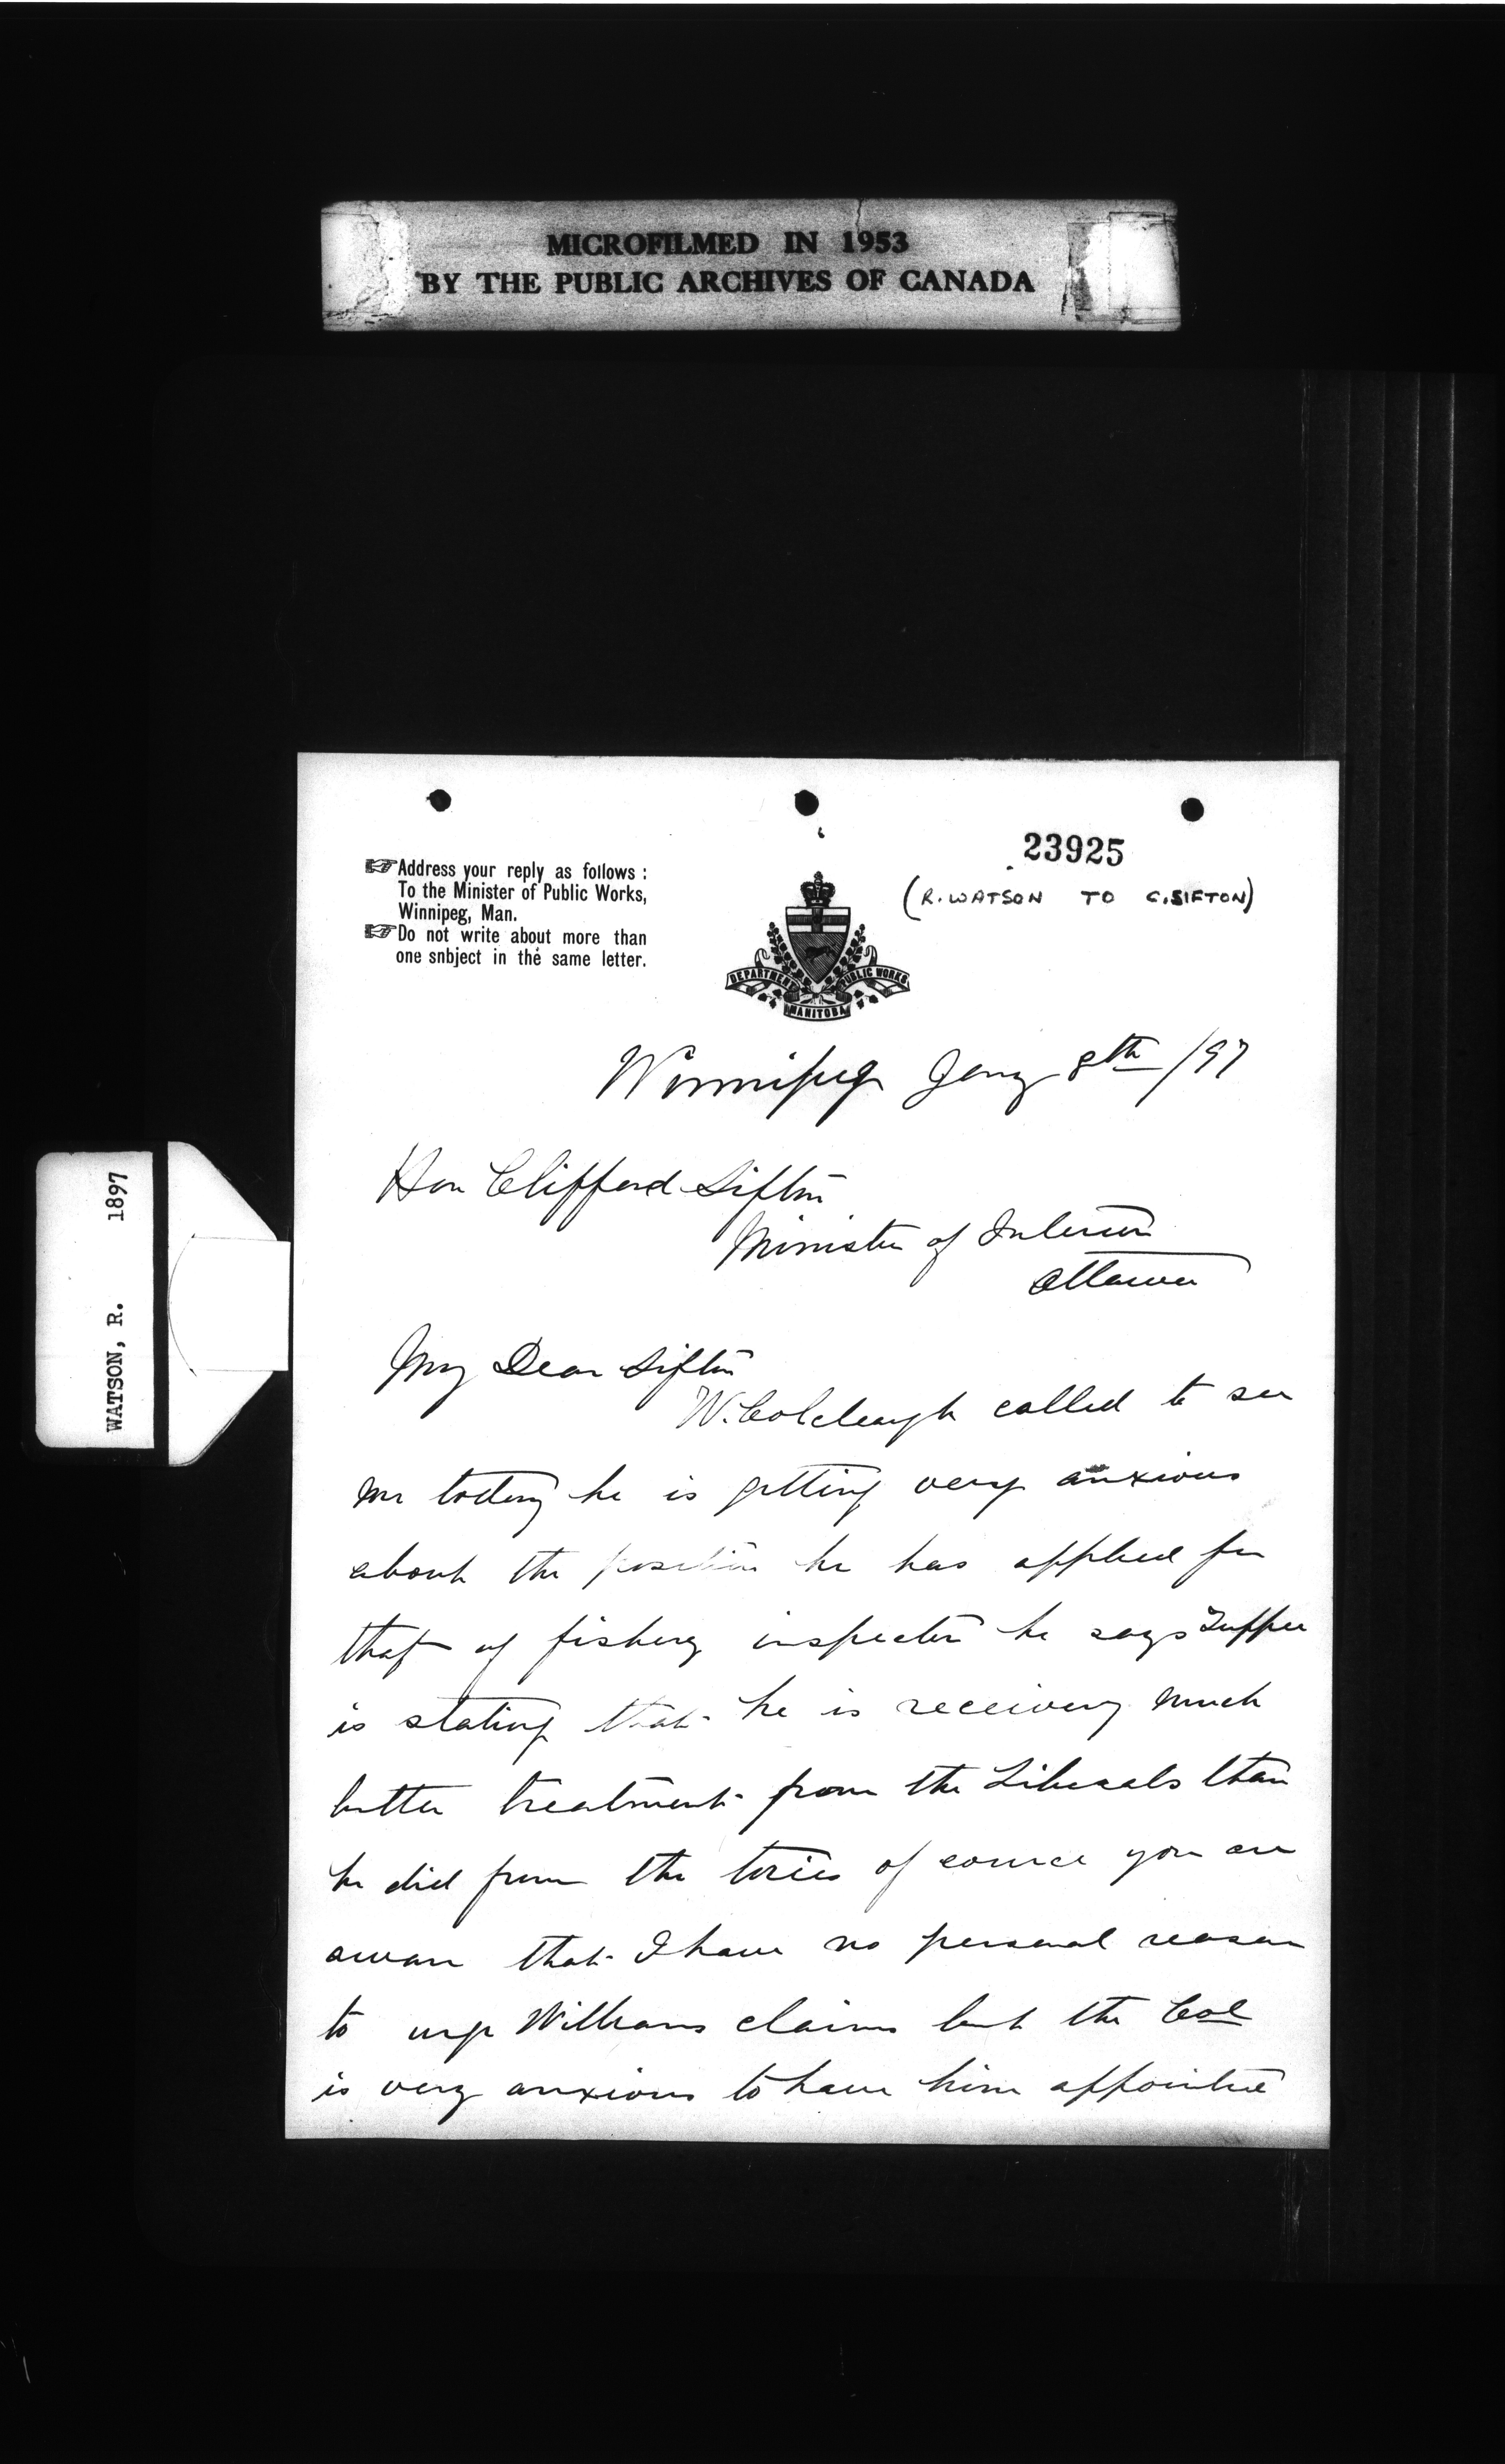 MICROFILMED IN 1953
BY THE PUBLIC ARCHIVES OF CANADA
23925
(R. WATSON TO C. SIFTON)
Address your reply as follows :
To the Minister of Public Works,
Winnipeg, Man.
Do not write about more than
one snbject in the same letter.
DEPARTMENT PUBLIC WORKS
MANITOBA
Winnipeg Jany 8th /97
Hon Clifford Sifton
Minister of Interior
Ottawa
My Dear Sifton
W. Colcleugh called to see
me today he is getting very anxious
about the position he has applied for
that of fishery inspector he says Tupper
is stating that he is receiving much
better treatment from the Liberals than
he did from the tories of cource you are
aware that I have no personal reason
to urge Williams claims but the Col
is very anxious to have him appointed
WATSON, R. 1897